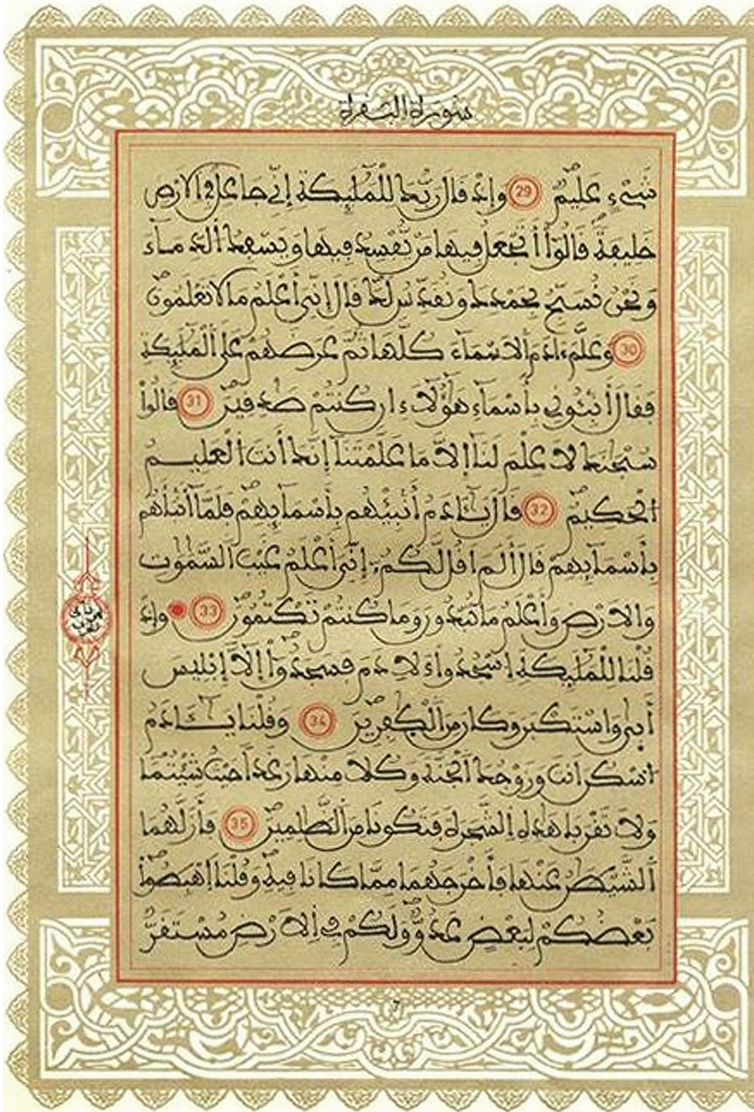 سورة البقرة
شَيْءٍ عَلِيمٌ 29 وَإِذْ قَالَ رَبُّكَ لِلْمَلَٰٓئِكَةِ إِنِّي جَاعِلٌ فِي اِلَارْضِ
خَلِيفَةٗ قَالُوٓاْ أَتَجْعَلُ فِيهَا مَنْ يُّفْسِدُ فِيهَا وَيَسْفِكُ الدِّمَآءَ
وَنَحْنُ نُسَبِّحُ بِحَمْدِكَ وَنُقَدِّسُ لَكَ قَالَ إِنِّيَ أَعْلَمُ مَا لَا تَعْلَمُونَ
30 وَعَلَّمَ ءَادَمَ اَلَاسْمَآءَ كُلَّهَا ثُمَّ عَرَضَهُمْ عَلَى اَلْمَلَٰٓئِكَةِ
فَقَالَ أَنۢبِـُٔونِي بِأَسْمَآءِ هَٰٓؤُلَآءِ ان كُنتُمْ صَٰدِقِينَ 31 قَالُواْ
سُبْحَٰنَكَ لَا عِلْمَ لَنَآ إِلَّا مَا عَلَّمْتَنَآ إِنَّكَ أَنتَ اَلْعَلِيمُ
اُلْحَكِيمُ 32 قَالَ يَٰٓـَٔادَمُ أَنۢبِئْهُم بِأَسْمَآئِهِمْ فَلَمَّآ أَنۢبَأَهُم
بِأَسْمَآئِهِمْ قَالَ أَلَمَ اَقُل لَّكُمُۥٓ إِنِّيَ أَعْلَمُ غَيْبَ اَلسَّمَٰوَٰتِ
وَالَارْضِ وَأَعْلَمُ مَا تُبْدُونَ وَمَا كُنتُمْ تَكْتُمُونَ 33 وَإِذْ
قُلْنَا لِلْمَلَٰٓئِكَةِ اِسْجُدُواْ ءلِادَمَ فَسَجَدُوٓاْ إِلَّآ إِبْلِيسَ
أَبَىٰ وَاسْتَكْبَرَ وَكَانَ مِنَ اَلْكَٰفِرِينَ 34 وَقُلْنَا يَٰٓـَٔادَمُ
اُسْكُنَ اَنتَ وَزَوْجُكَ اَلْجَنَّةَ وَكُلَا مِنْهَا رَغَداً حَيْثُ شِئْتُمَا
وَلَا تَقْرَبَا هَٰذِهِ اِلشَّجَرَةَ فَتَكُونَا مِنَ اَلظَّٰلِمِينَ 35 فَأَزَلَّهُمَا
اَلشَّيْطَٰنُ عَنْهَا فَأَخْرَجَهُمَا مِمَّا كَانَا فِيهِ وَقُلْنَا اَهْبِطُواْ
بَعْضُكُمْ لِبَعْضٍ عَدُوّٞ وَلَكُمْ فِي اِلَارْضِ مُسْتَقَرّٞ
7